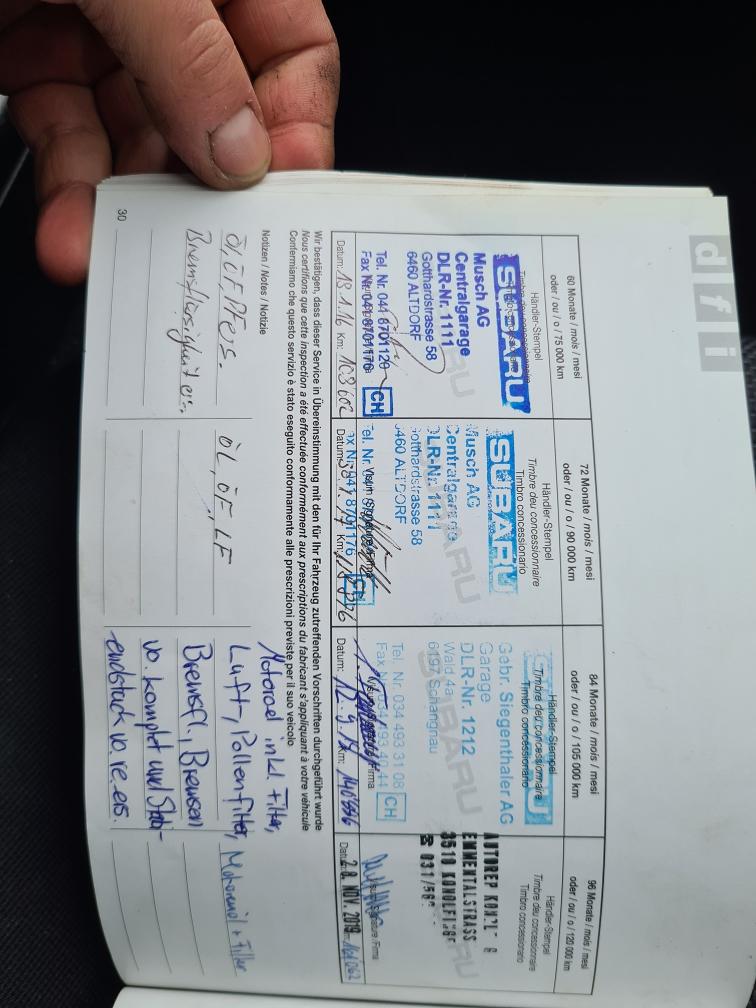 d f i
60 Monate / mois / mesi
oder / ou / o / 75 000 km
Händler-Stempel
SUBARU
Musch AG
Centralgarage
DLR-Nr. 1111
Gotthardstrasse 58
6460 ALTDORF
Tel. Nr. 041 8701120
Fax Nr. 041 8701176
CH
Datum: Km: 103 602
72 Monate / mois / mesi
oder / ou / o / 90 000 km
Händler-Stempel
Timbre deu concessionnaire
Timbro concessionario
SUBARU
Musch AG
Centralgarage
DLR-Nr. 1111
Gotthardstrasse 58
6460 ALTDORF
Tel. Nr.
Fax Nr. 041 8701176
CH
Datum: Km:
84 Monate / mois / mesi
oder / ou / o / 105 000 km
Händler-Stempel
Timbre deu concessionnaire
Timbro concessionario
Gebr. Siegenthaler AG
Garage
DLR-Nr. 1212
Wald 4a
6197 Schangnau
Tel. Nr. 034 493 31 08
Fax Nr. 034 493 40 44
CH
Datum: 12.9.17 Km:
96 Monate / mois / mesi
oder / ou / o / 120 000 km
Händler-Stempel
Timbre deu concessionnaire
Timbro concessionario
AUTOREP
EMMENTALSTRASS
3510 KONOLFINGE
☎ 031/
Datum: 28. NOV. 2019
Wir bestätigen, dass dieser Service in Übereinstimmung mit den für Ihr Fahrzeug zutreffenden Vorschriften durchgeführt wurde
Nous certifions que cette inspection a été effectuée conformément aux prescriptions du fabricant s'appliquant à votre véhicule
Confermiamo che questo servizio è stato eseguito conformamente alle prescrizioni previste per il suo veicolo.
Notizen / Notes / Notizie
Öl, ÖF, Pf ers.
Bremsflüssigkeit ers.
ÖL, ÖF, LF
Motoroel inkl. Filter,
Luft-, Pollenfilter,
Bremsfl., Bremsen
vo. komplet und Stab-
endstück vo. re. ers.
Motorenöl + Filter
30